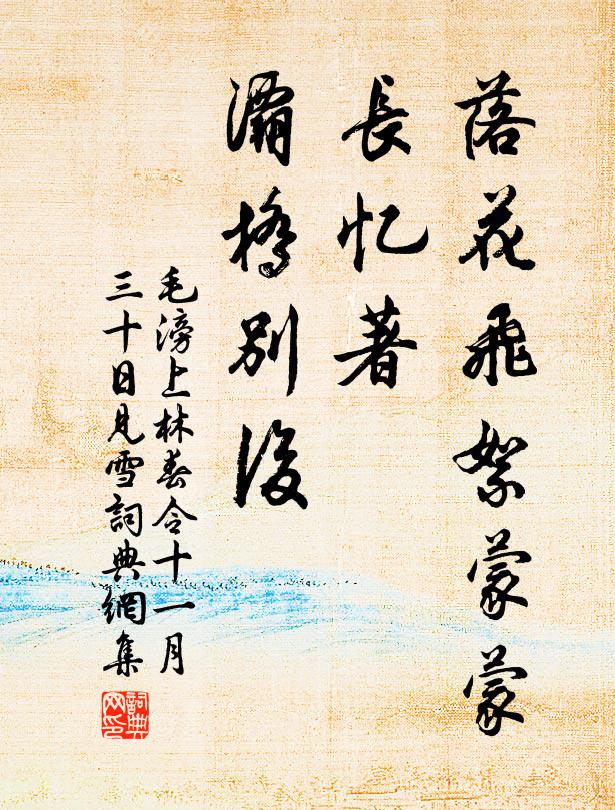 落花飛絮蒙蒙
長忆著
灞橋別後
毛滂上林春令十一月
三十日見雪詞典網集
詞典網印